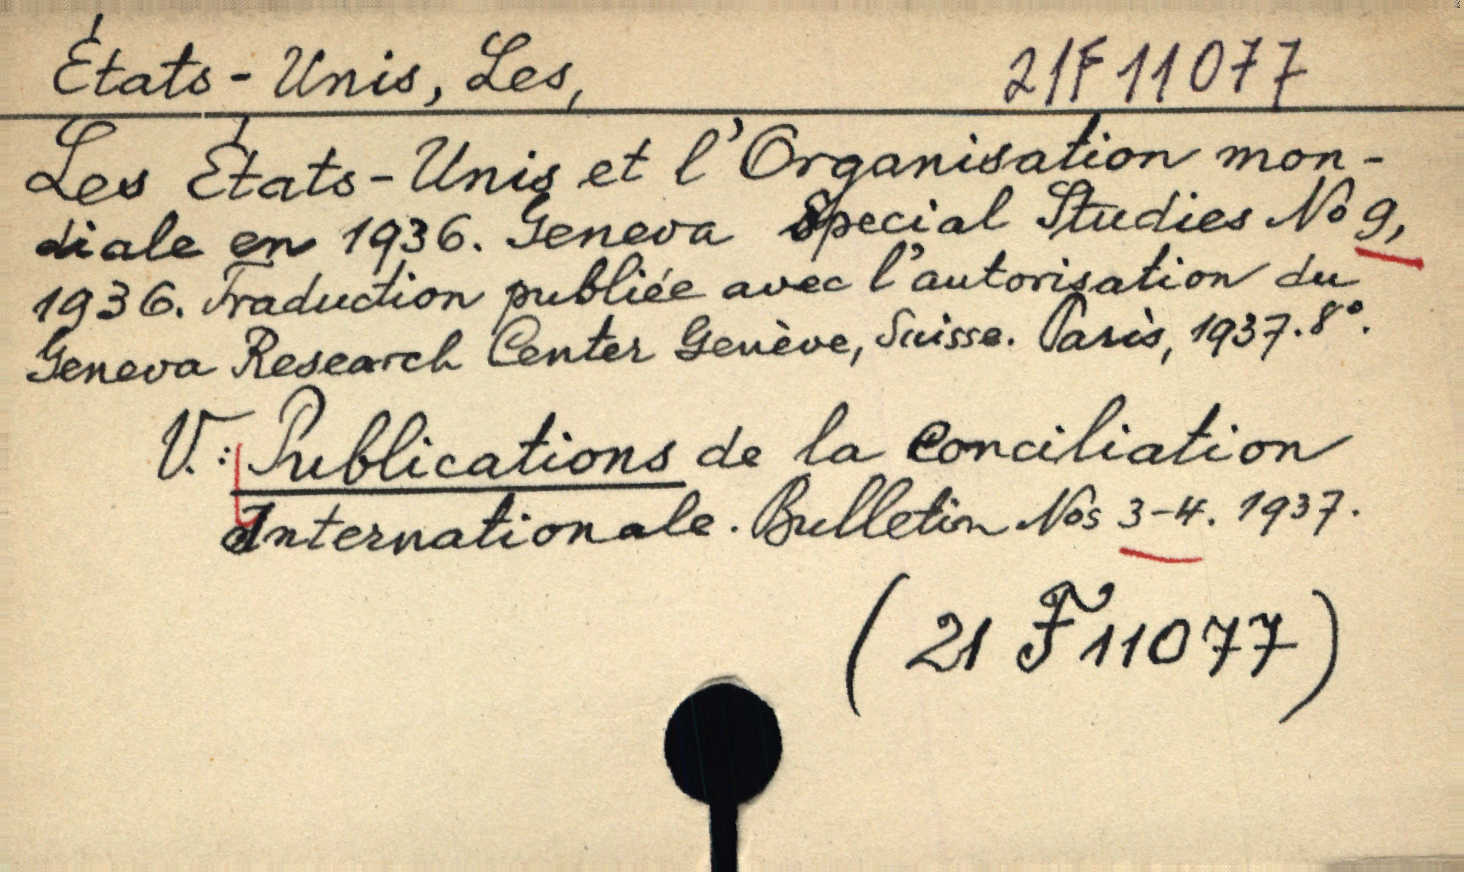 États-Unis, Les, 21F11077
Les États-Unis et l'Organisation mon-
diale en 1936. Geneva Special Studies No 9,
1936. Traduction publiée avec l'autorisation du
Geneva Research Center Genève, Suisse. Paris, 1937. 8°.
V.: Publications de la Conciliation
Internationale. Bulletin Nos 3-4. 1937.
(21 F 11077)